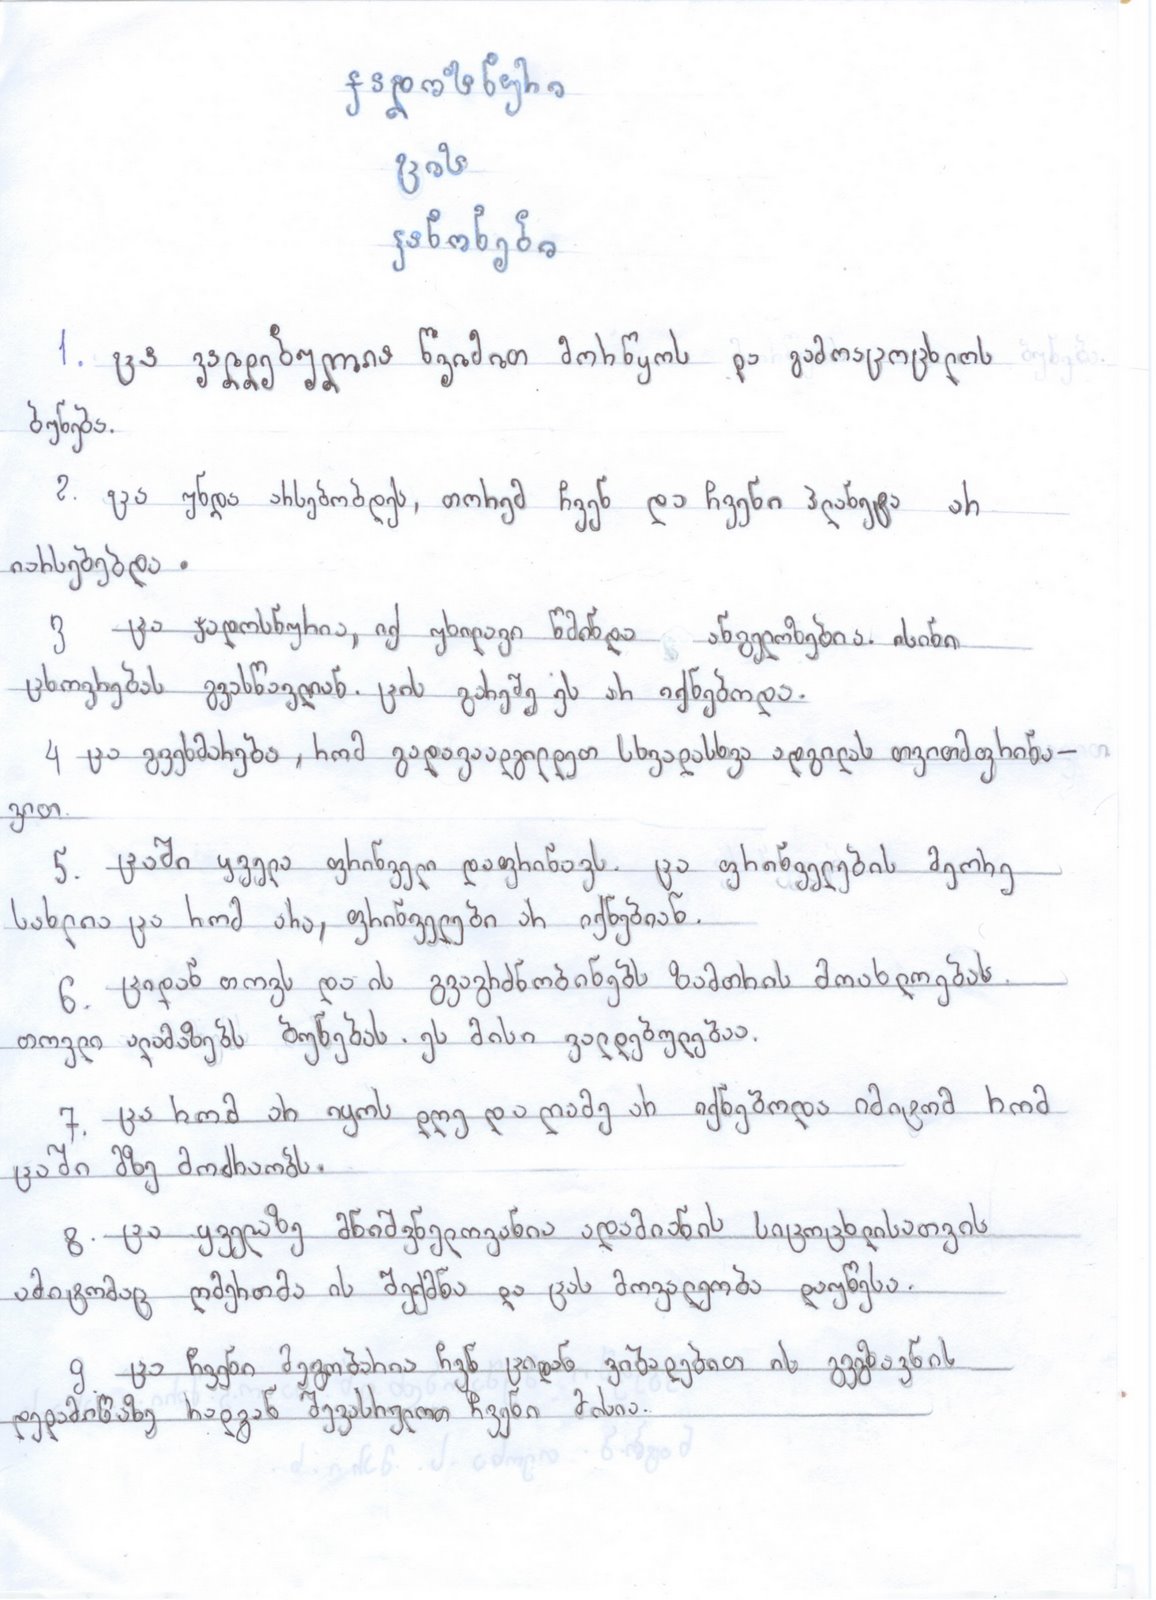 ჯადოსნური
ცის
კანონები
1. ცა ვალდებულია წვიმით მორწყოს და გამოაცოცხლოს
ბუნება.
2. ცა უნდა არსებობდეს, თორემ ჩვენ და ჩვენი პლანეტა არ
იარსებებდა.
3 ცა ჯადოსნურია, იქ უხილავი წმინდა ანგელოზებია. ისინი
ცხოვრებას გვასწავლიან. ცის გარეშე ეს არ იქნებოდა.
4 ცა გვეხმარება, რომ გადავაადგილდეთ სხვადასხვა ადგილას თვითმფრინა-
ვით.
5. ცაში ყველა ფრინველი დაფრინავს. ცა ფრინველების მეორე
სახლია ცა რომ არა, ფრინველები არ იქნებიან.
6. ციდან თოვს და ის გვაგრძნობინებს ზამთრის მოახლოებას.
თოვლი ალამაზებს ბუნებას. ეს მისი ვალდებულებაა.
7. ცა რომ არ იყოს დღე და ღამე არ იქნებოდა იმიტომ რომ
ცაში მზე მოძრაობს.
8. ცა ყველაზე მნიშვნელოვანია ადამიანის სიცოცხლისათვის
ამიტომაც ღმერთმა ის შექმნა და ცას მოვალეობა დაუწესა.
9. ცა ჩვენი მეგობარია ჩვნ ციდან ვიბადებით ის გვგზავნის
დედამიწაზე რადგან შევასრულოთ ჩვენი მისია.